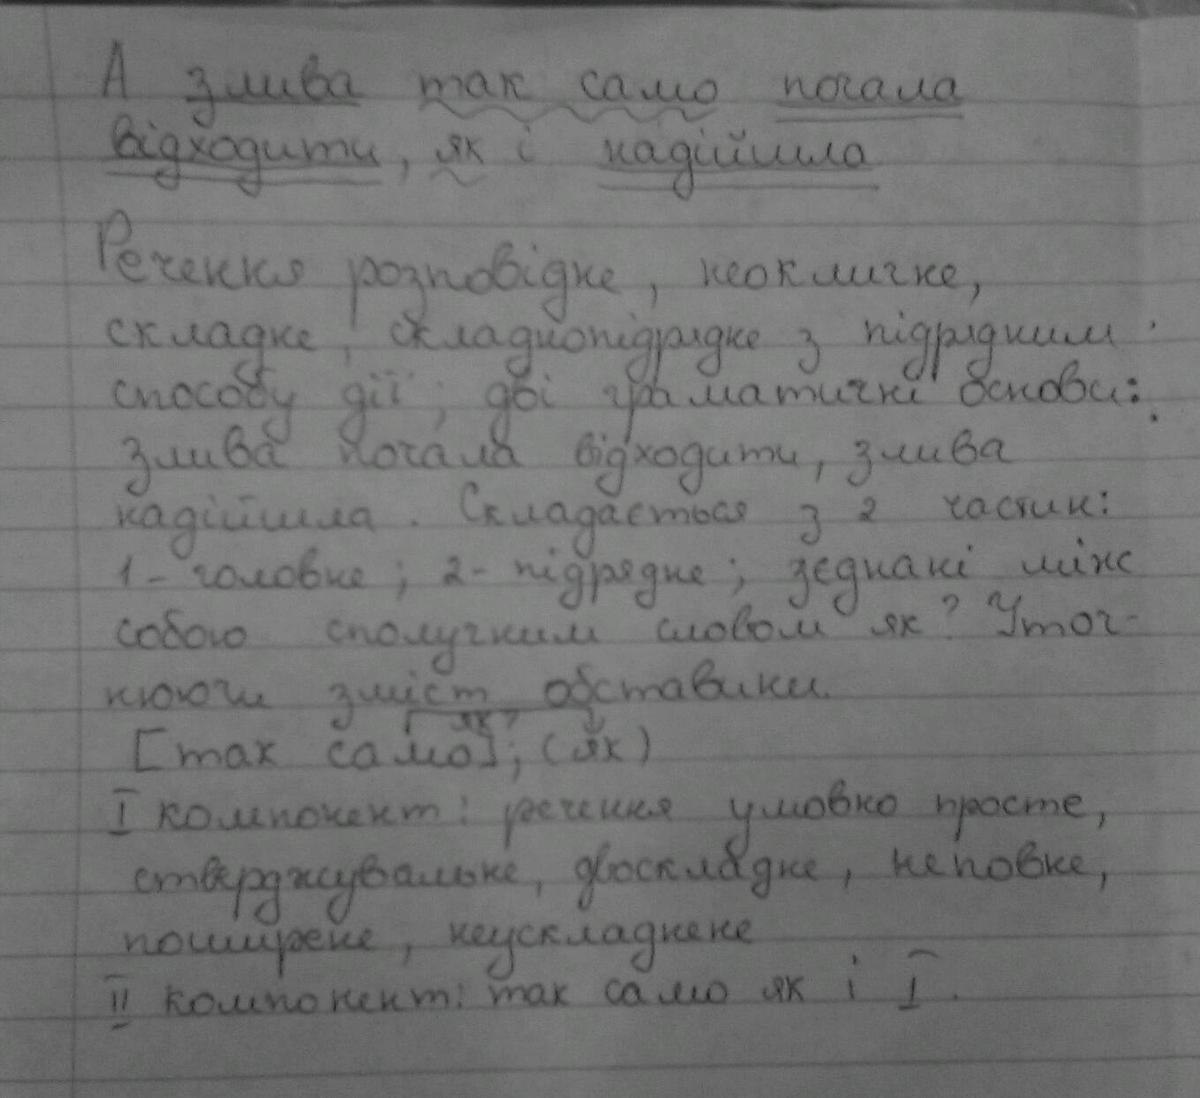 А злива так само почала
відходити, як і надійшла
Речення розповідне, неокличне,
складне, складнопідрядне з підрядним
способу дії, дві граматичні основи:
злива почала відходити, злива
надійшла. Складається з 2 частин:
1 - головне; 2 - підрядне; зєднані між
собою сполучним словом як? Уточ-
нюючи зміст обставини.
як?
[так само], (як)
I компонент: речення умовно просте,
стверджувальне, двоскладне, неповне,
поширене, неускладнене
II компонент: так само як і I.